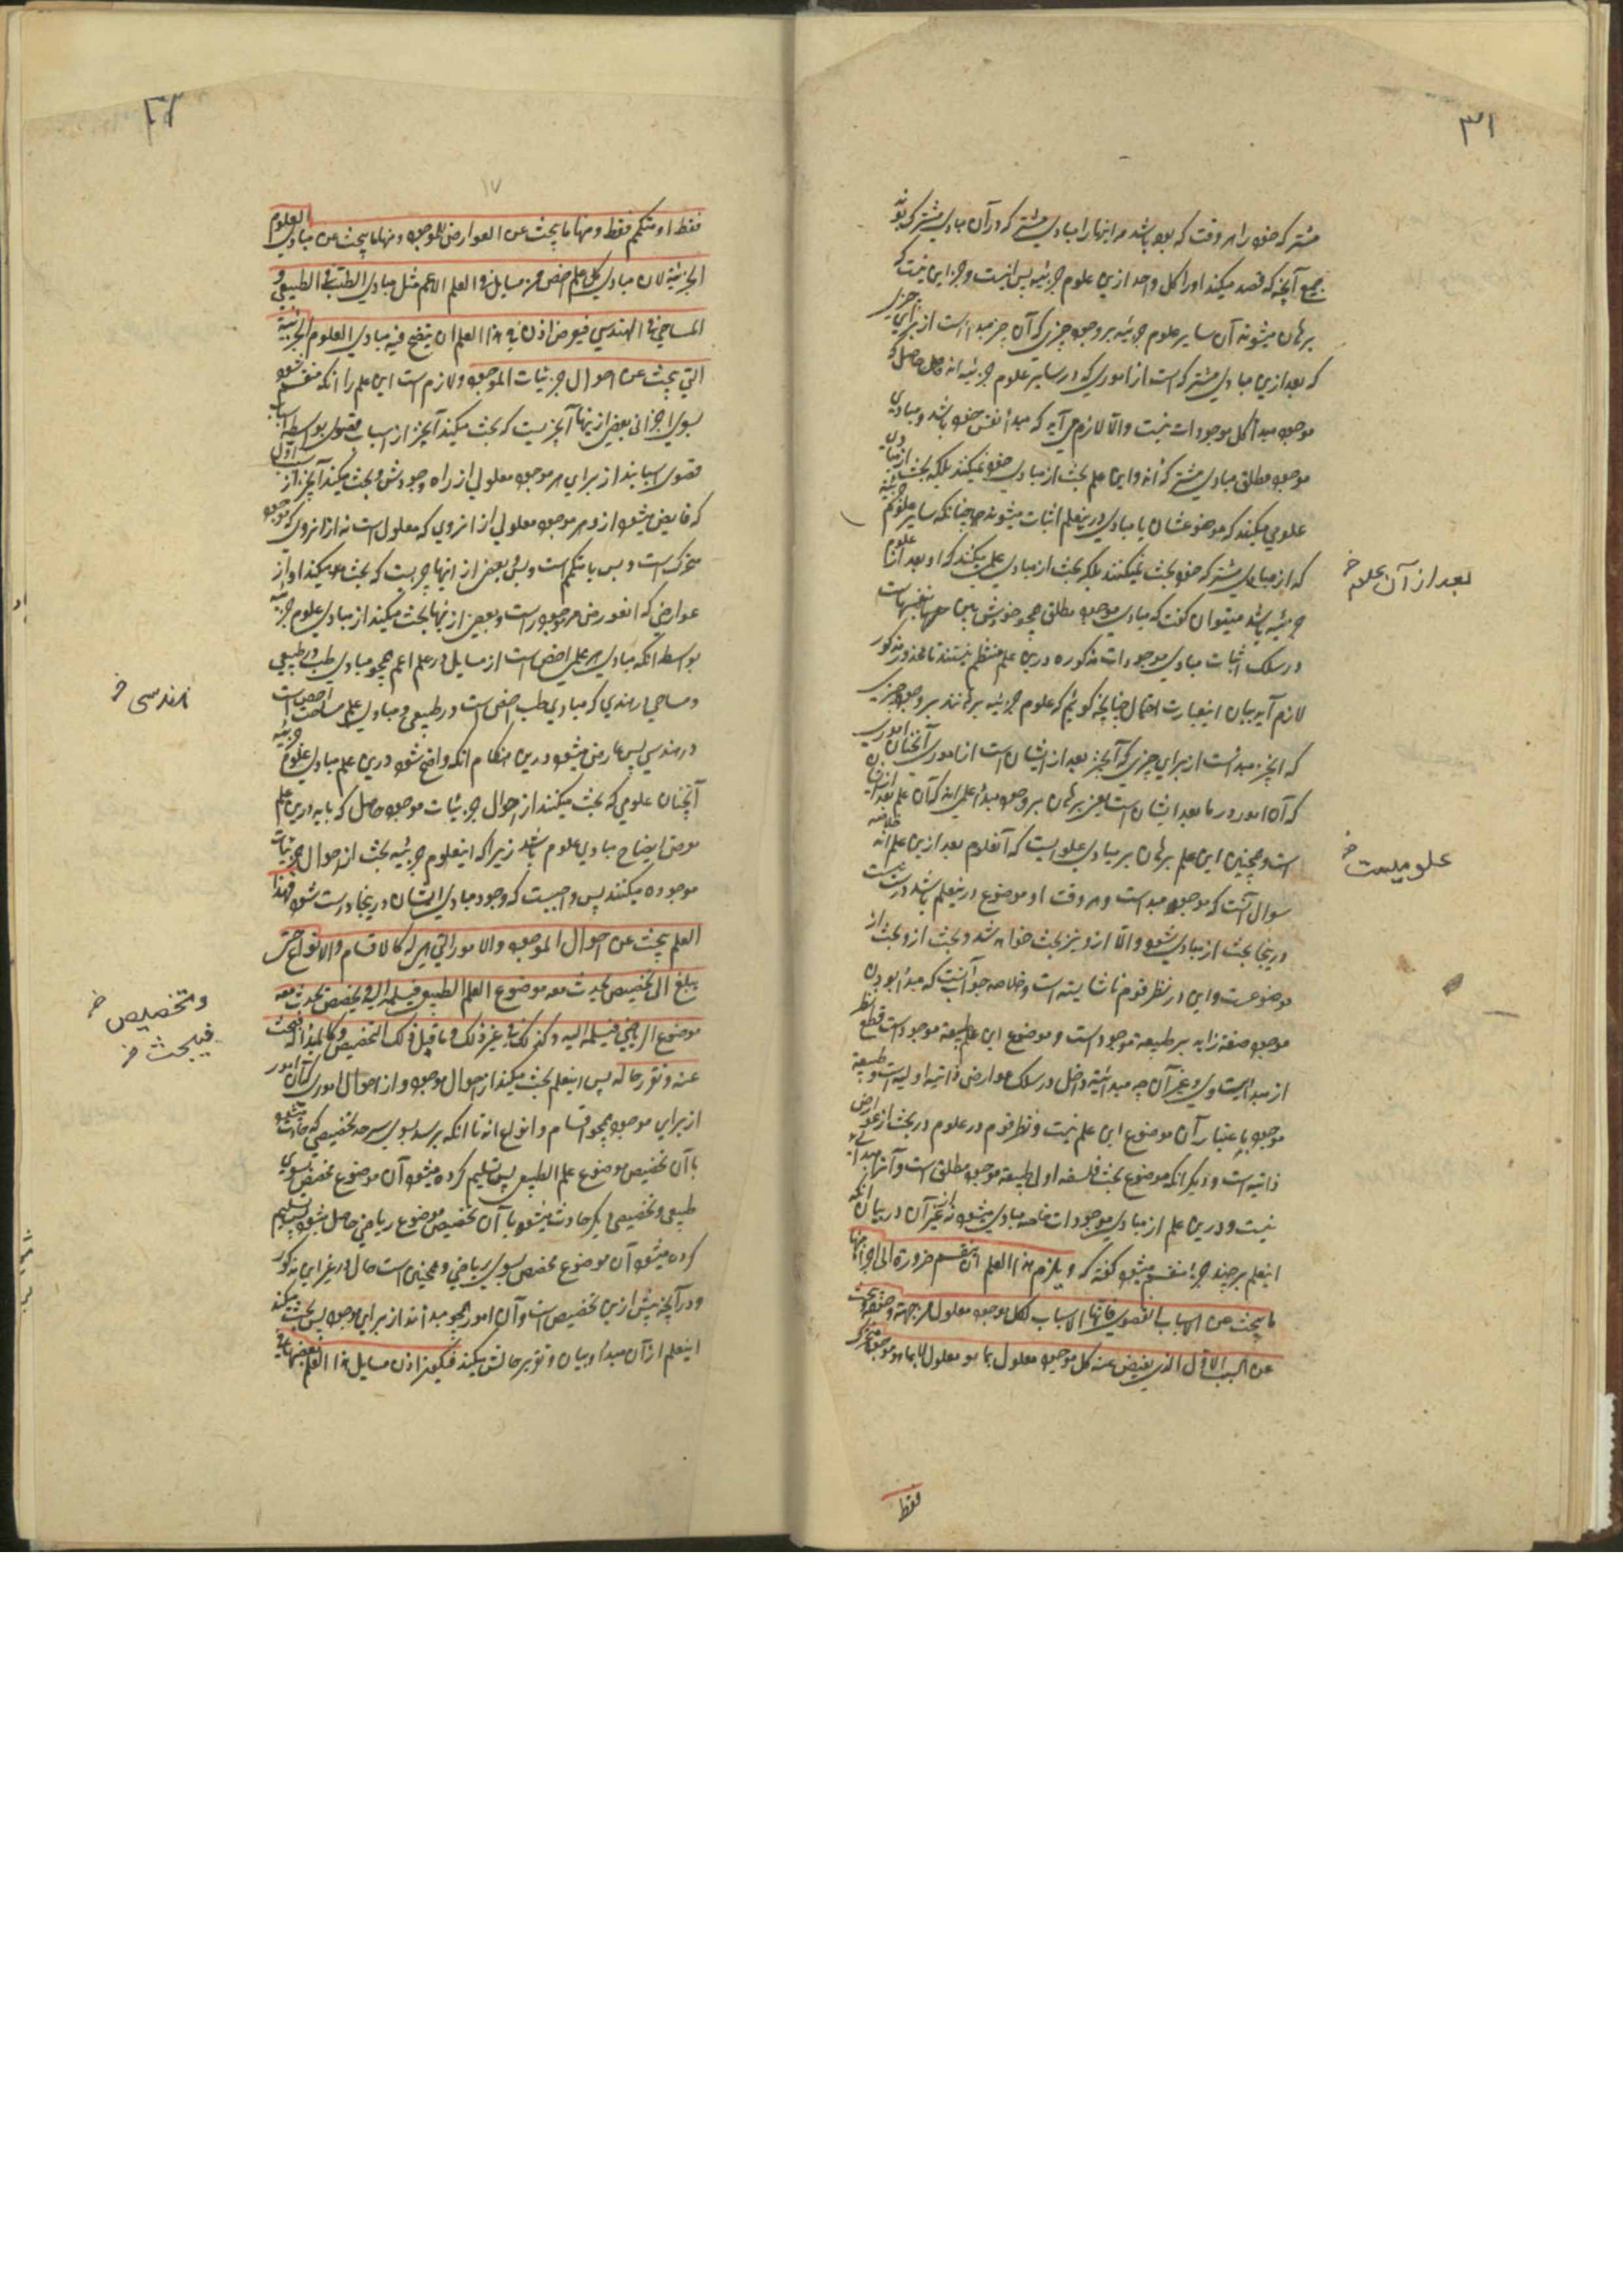 ۳۱
مشترکه خود را هر وقت که بوده باشد مر اینها را مبادی مشترکه در آن مبادی مشترک بوند
جمیع آنچه که قصد میکند او را کل واحد ازین علوم جزئیه پس اینست وجز این نیست که
برهان میشوند آن سایر علوم جزئیه بر وجود چیزی که آن چیز مبدا است از برای چیزی
که بعد ازین مبادی مشترکه است از اموری که در سایر علوم جزئیه اند
موجود مبدأ کل موجودات نیست والّا لازم می آید که مبدأ نفس خود باشد و مبادی
موجود مطلق مبادی مشترکه اند و این علم بحث از مبادی خود نمیکند بلکه بحث از مبادی
علومی میکند که موضوعشان یا مبادی درینعلم اثبات میشوند چنانکه سایر علوم جزئیه
که از مبادی مشترکه خود بحث نمیکنند بلکه بحث از مبادی علمی میکنند که او بعد از علوم
جزئیه باشد میتوان گفت که مبادی موجود مطلق همچو خودش بین
در سلک اثبات مبادی موجودات مذکوره درین علم منتظم نیستند تا محذور مذکور
لازم آید بیان اینعبارت احتمال چنانچه گوئیم که علوم جزئیه برهانند بر وجود چیزی
که آنچیز مبدأست از برای چیزی که آنچیز بعد از ایشان است از اموری آنچنان اموری
که آن امور در ما بعد ایشان است یعنی برهان بر وجود مبدأ علمی اند که آن علم بعد از ایشان
است و همچنین این علم برهان بر مبادی علومیست که آنعلوم بعد ازین علم اند خلاصه
سوال آنست که موجود مبدا است و هر وقت او موضوع درینعلم باشد درست نیست
در اینجا بحث از مبادی شود والّا ازو نیز بحث خواهد شد و بحث ازو بحث از
موضوعست و این در نظر قوم ناشایسته است و خلاصه جواب آنست که مبدأ بودن
موجود صفة زایه بر طبیعة موجود است و موضوع این علم طبیعة موجود است قطع نظر
از مبدأیت وی و غیر آن چه مبدأیت داخل در سلک عوارض ذاتیه اولیه است و طبیعة
موجود باعتبار آن موضوع این علم نیست و نظر قوم در علوم در بحث از عوارض
ذاتیه است و دیگر آنکه موضوع بحث فلسفه اولی طبیعة موجود مطلق است و آنرا مبدأی
نیست و درین علم از مبادی موجودات خاصه مبادی میشود نه از غیر آن در بیان آنکه
اینعلم بر چند جزء منقسم میشود گفته که ویلزم هذا العلم ان ینقسم ضرورة الی اجزاء منها
ما یبحث عن الاسباب القصوی فانها الاسباب لکل موجود معلول من جهة وجوده ویبحث
عن السبب الاوّل الذی یفیض عنه کل موجود معلول بما هو معلول لا بما هو موجود متحرک
فقط
بعد از آن علوم خ
علومیست خ
۳۲
۱۷
فقط او متکمم فقط ومنها ما یبحث عن العوارض للموجود ومنها ما یبحث عن مبادی العلوم
الجزئیة لان مبادی کل علم اخص هی مسایل فی العلم الاعم مثل مبادی الطب فی الطبیعی و
المساحی فی الهندسی فیعرض اذن فی هذا العلم ان یتضح فیه مبادی العلوم الجزئیة
التی یبحث عن احوال جزئیات الموجود ولازم است این علم را آنکه منقسم شود
بسوی اجزائی بعضی از ینها آنچیزیست که بحث میکند آنچیز از اسباب قصوی بواسطه آنکه اسباب
قصوی اسبابند از برای هر موجود معلولی از راه وجودش و بحث میکند آنچیز از سبب اول
که فایض میشود ازو هر موجود معلولی از آنروی که معلول است نه از آنروی که موجود
متحرک است و بس یا متکمم است و بس و بعضی از اینها چیزیست که بحث میکند او از
عوارضی که عارض موجود است و بعضی از اینها بحث میکند از مبادی علوم جزئیه
بواسطه آنکه مبادی هر علمی اخص است از مسایل در علم اعم همچو مبادی طب در طبیعی
و مساحی در هندسی که مبادی طب اخص است در طبیعی و مبادی علم مساحت اخص است
در هندسی پس عارض میشود درین هنگام آنکه واضح شود درین علم مبادی علوم جزئیه
آنچنان علومی که بحث میکنند از احوال جزئیات موجود حاصل که باید درین علم
موضع ایضاح مبادی علوم باشد زیرا که اینعلوم جزئیه بحث از احوال جزئیات
موجوده میکنند پس واجبست که وجود مبادی ایشان در اینجا درست شود فهذا
العلم یبحث عن احوال الموجود والامور التی هی له کالاقسام والانواع حتی
یبلغ الی تخصیص یحدث معه موضوع العلم الطبیعی فیسلمه الیه وتخصیص یحدث معه
موضوع الریاضی فیسلمه الیه وکذلک فی غیر ذلک وما قبل ذلک التخصیص وکالمبدأ له فبحث
عنه وتقرر حاله پس اینعلم بحث میکند از احوال موجود و از احوال اموری که آن امور
از برای موجود همچو اقسام و انواع اند تا آنکه برسد بسوی سرحد تخصیصی که حادث میشود
با آن تخصیص موضوع علم الطبیعی پس تسلیم کرده میشود آن موضوع مخصص بسوی
طبیعی و تخصیصی دیگر حادث میشود با آن تخصیص موضوع ریاضی حاصل شود پس تسلیم
کرده میشود آن موضوع مخصص بسوی ریاضی و همچنین است حال در غیر این مذکور
و در آنچه پیش ازین تخصیص است و آن امور همچو مبدأند از برای موجود پس بحث میکند
اینعلم از آن مبدأ و بیان و تقریر حالش میکند فیکون اذن مسایل هذا العلم بعضها فی
هندسی خ
وتخصیص خ
فیبحث خ